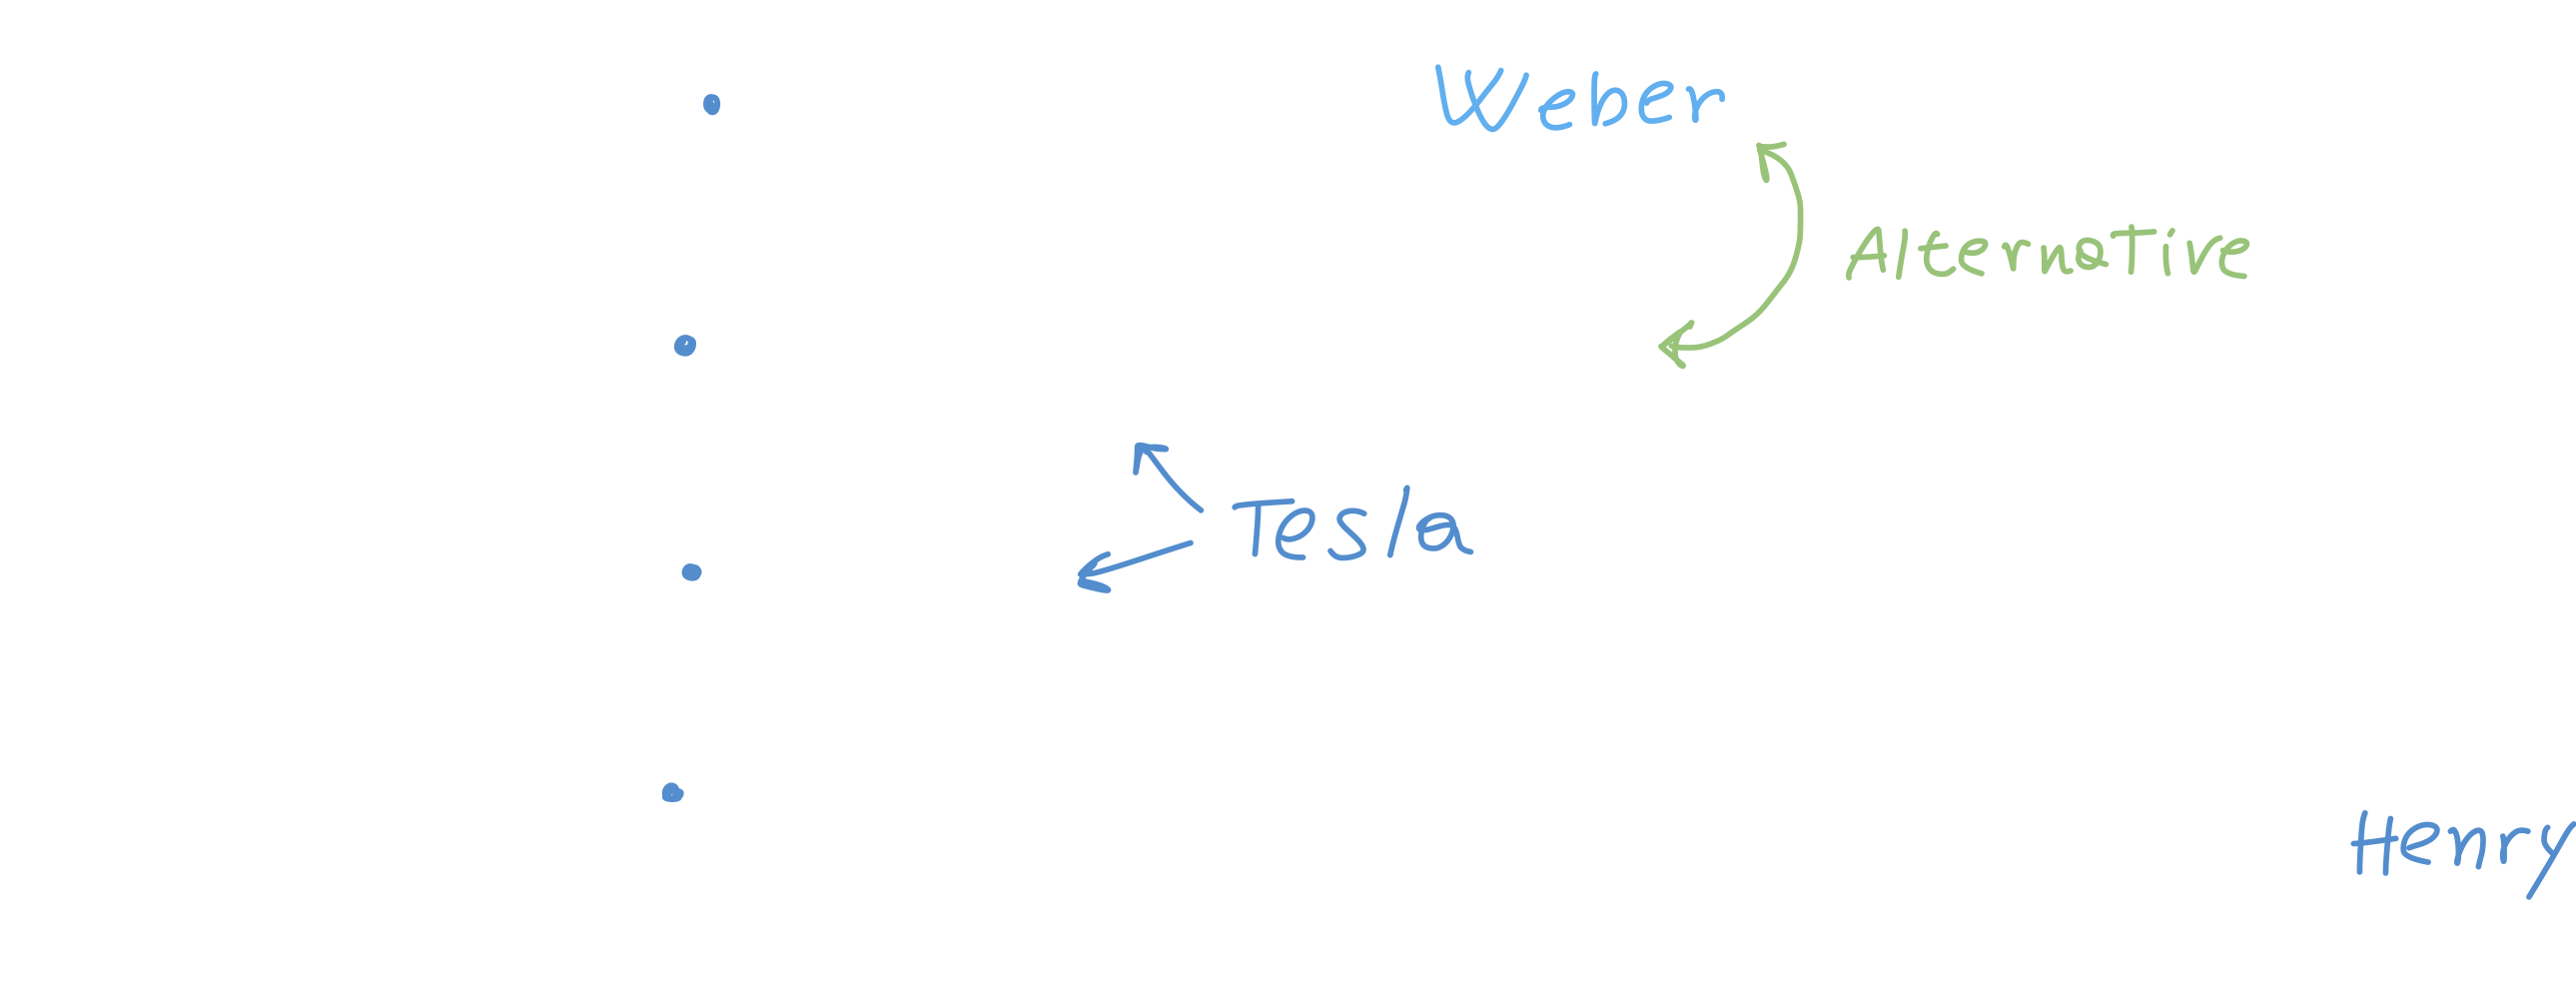 Weber
Alternative
Tesla
Henry